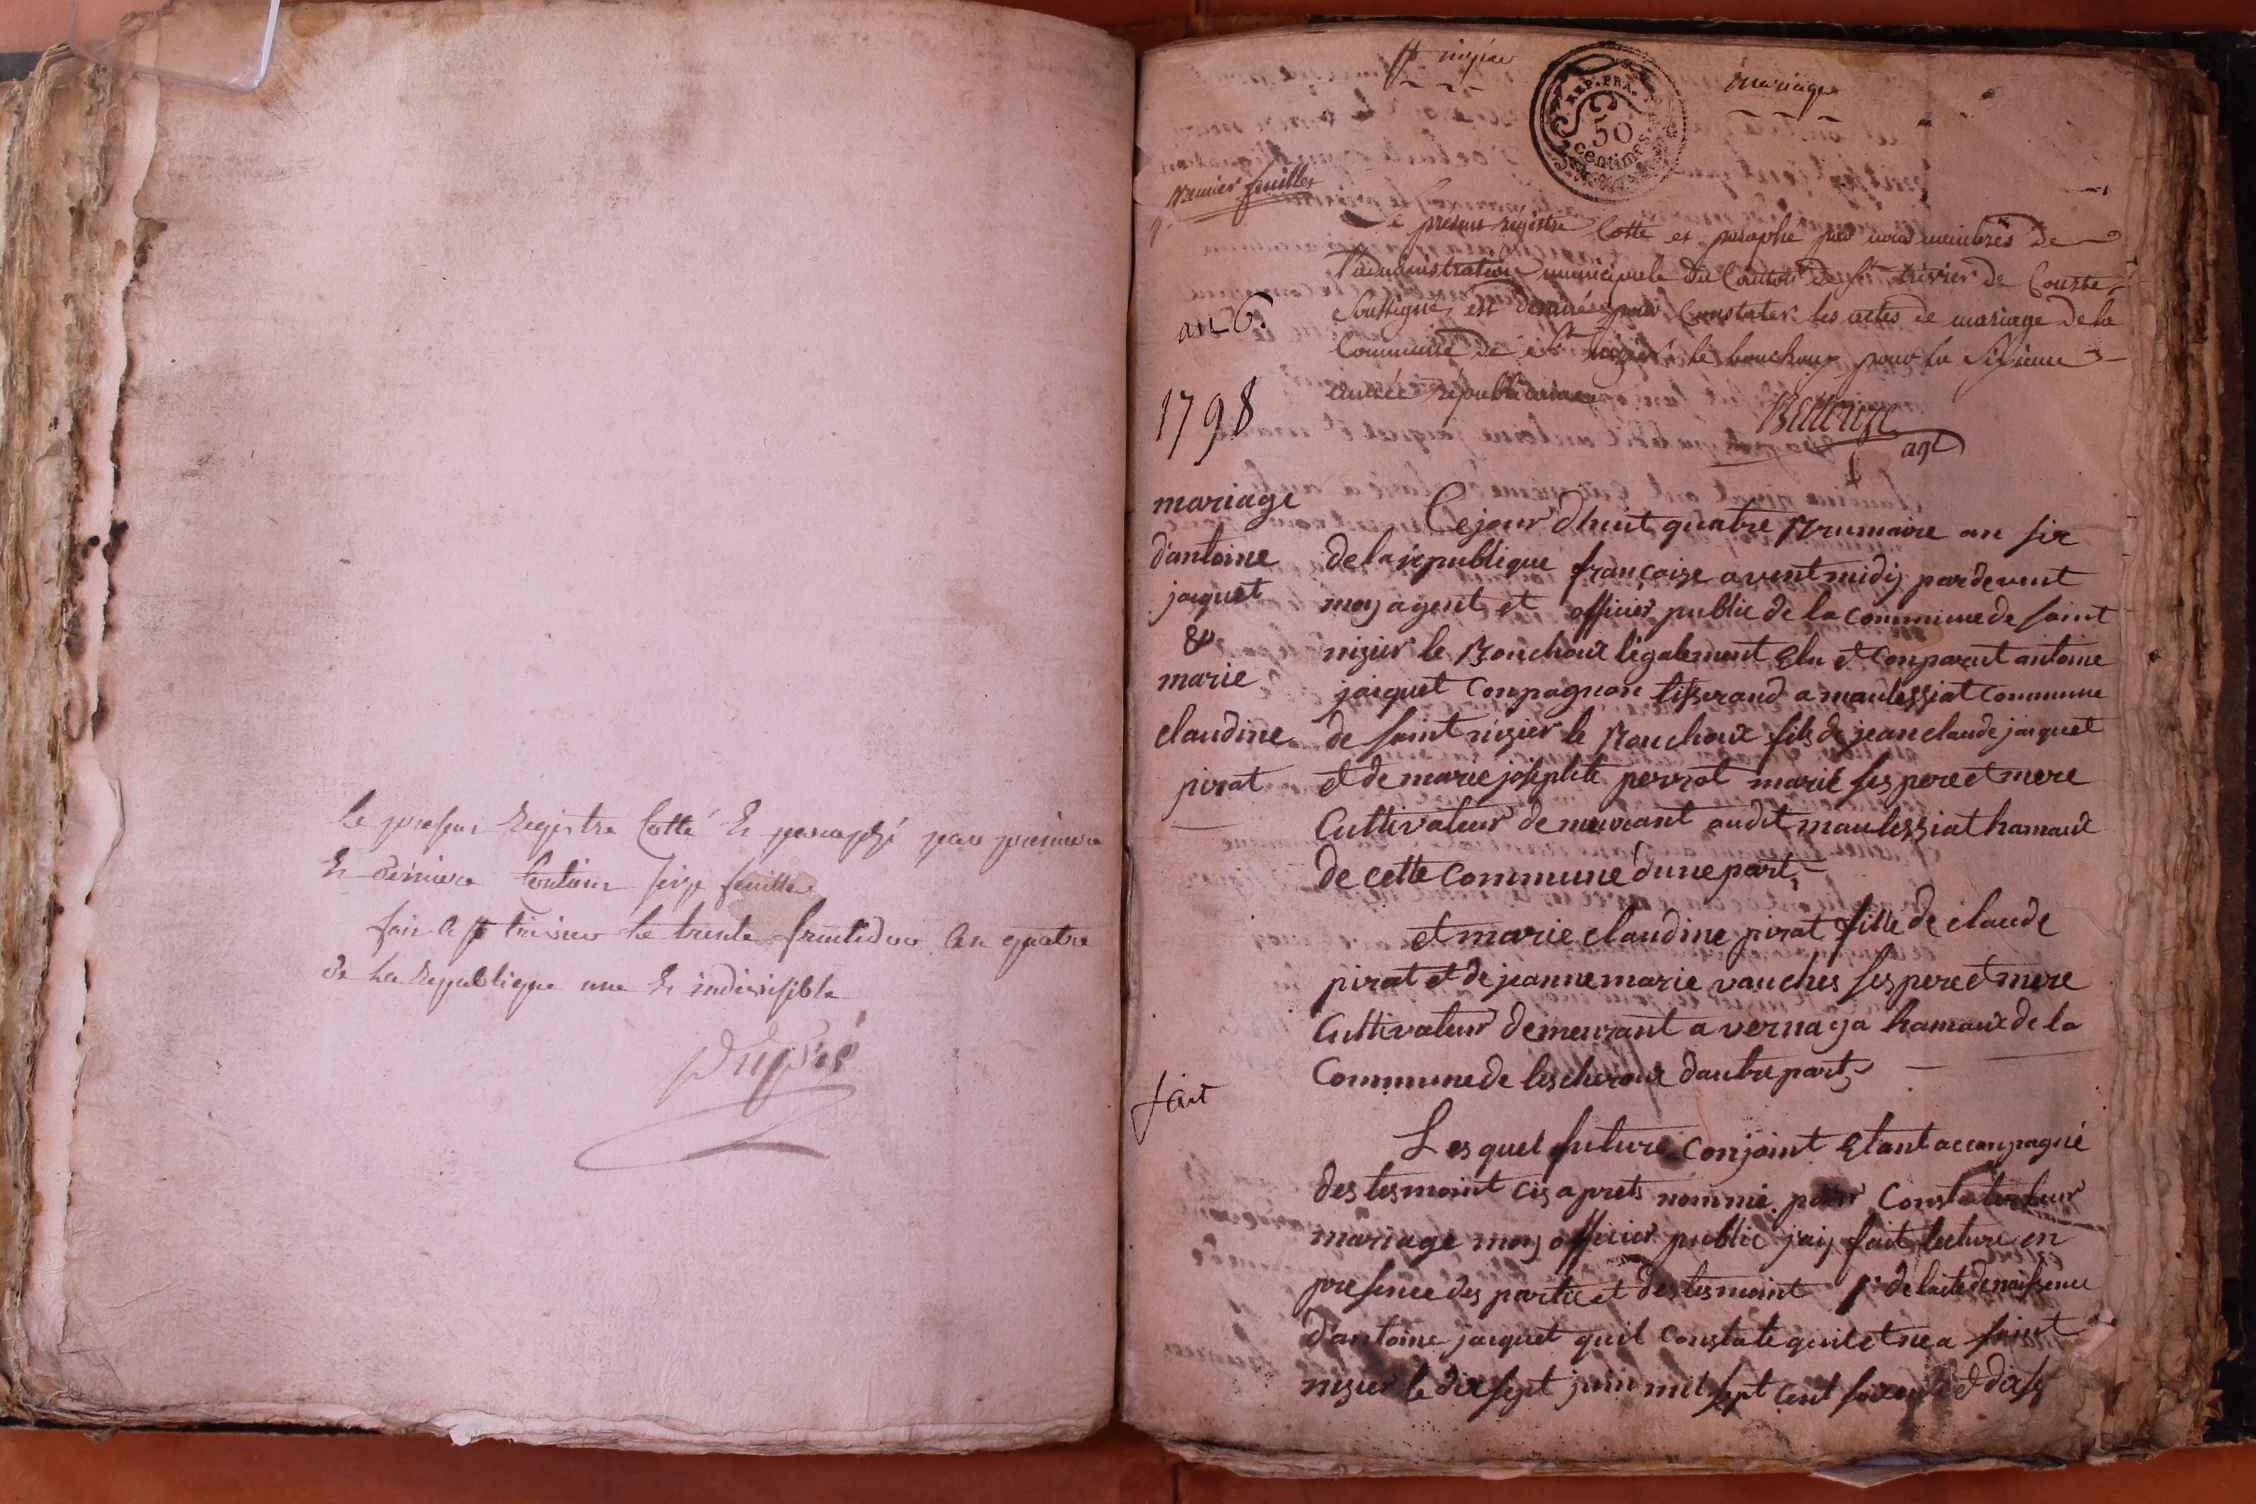 le presens Registre Cotté Et paraphé par premiere
Et derniere Contient seize feuilles
fait a st trivier le trente fructidor An quatre
de La Republique une Et indivisible
Dupré
st nizier
mariage
REP. FRA.
50
centimes
premier feuillet
Le present régistre Cotté et paraphé par nous membres de
l'administration municipale du Canton de st trivier de Courte
Soussigné, est destiné pour Constater les actes de mariage de la
Commune de st nizier le bouchoux pour la sixieme
année républicaine
an 6.
1798
agt
mariage
d'antoine
jacquet
&
marie
claudine
pirat
Ce jour dhuit quatre Brumaire an six
de la republique françoise avent midy pardevent
moy agent et officier public de la commune de saint
nizier le Bouchoux légalement Elu et Conparut antoine
jacquet Conpagnon tisserand a maulessiat commune
de saint nizier le Bouchoux fils de jean claude jacquet
et de marie josephte perrot marié ses pere et mere
Cultivateur demeurant audit maulessiat hamaux
de cette Commune d'une part
et marie claudine pirat fille de claude
pirat et de jeanne marie vauches ses pere et mere
Cultivateur demeurant a vernaya hamaux de la
Commune de lescheroux dautre part
fait
Les quel future Conjoint Etant acconpagné
des tesmoint cis aprets nommé pour Constater leur
mariage moy officier public jaiy fait lecture en
presence des partie et des tesmoint 1° de lacte de naissence
d'antoine jacquet quil Constate quil et ne a saint
nizier le dix sept juin mil sept cent soixante et dix